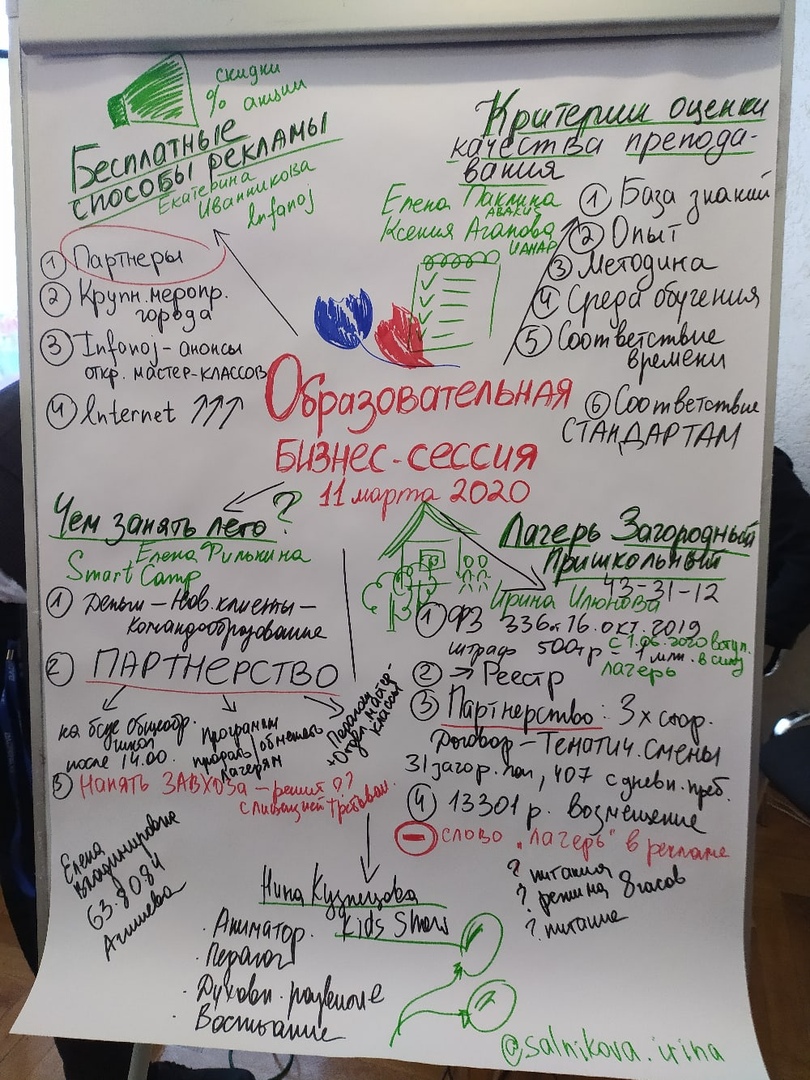 скидки
% акции
Бесплатные
способы рекламы
Екатерина
Иванникова
Infanoj
① Партнеры
② Крупн. меропр.
города
③ Infanoj - анонсы
откр. мастер-классов
④ Internet ↗↗↗
Критерии оценки
качества препода-
вания
Елена Паклина
Ксения Агапова
① База знаний
② Опыт
③ Методика
④ Среда обучения
⑤ Соответствие
времени
⑥ Соответствие
СТАНДАРТАМ
Образовательная
БИЗНЕС-СЕССИЯ
11 марта 2020
Чем занять лето?
Елена Филькина
Smart Camp
① Деньги – Нов. клиенты –
командообразование
② ПАРТНЕРСТВО
на базе общеобр.
школ
после 14.00.
программы
продать/обменять
лагерям
+ Отдел. мастер-
классы
③ Нанять ЗАВХОЗа – решит ??
Лагерь Загородный
Пришкольный
43-31-12
Ирина Илюнова
① ФЗ 336 от 16. окт. 2019
штраф 500тр 1 млн.
с 1.06.2020 вступ.
в силу
лагерь
② → Реестр
③ Партнерство: 3х стор.
Договор – Тематич. смены
31 загор. лаг, 407 с дневн. преб.
④ 13301 р. Возмещение
⊖ слово „лагерь" в рекламе
? питания
? режима 8 часов
? питание
Елена
Владимировна
63-8084
Агишева
Нина Кузнецова
Kids Show
· Аниматор.
· Педагог
· Духовн. развитие
Воспитание
@salnikova.irina